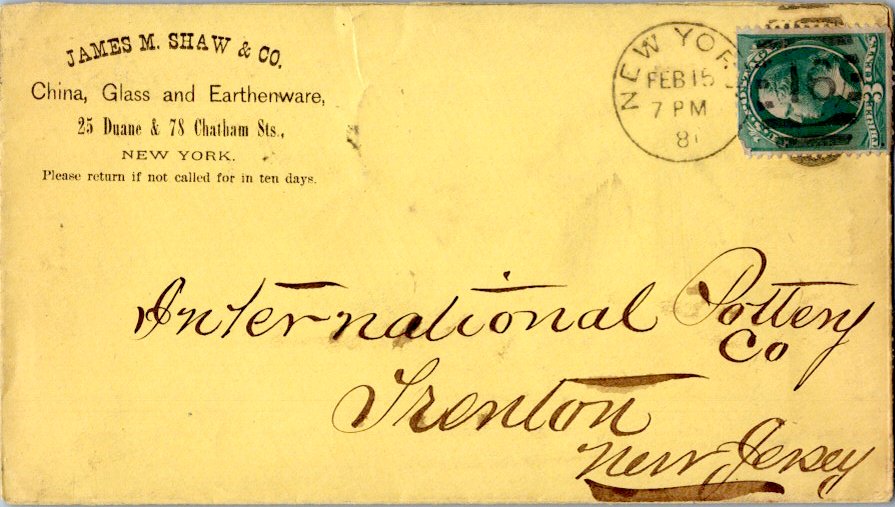 JAMES M. SHAW & CO.
China, Glass and Earthenware,
25 Duane & 78 Chatham Sts.,
NEW YORK.
Please return if not called for in ten days.
NEW YOR
FEB 15
7 PM
81
16
International Pottery
Co
Trenton
New Jersey